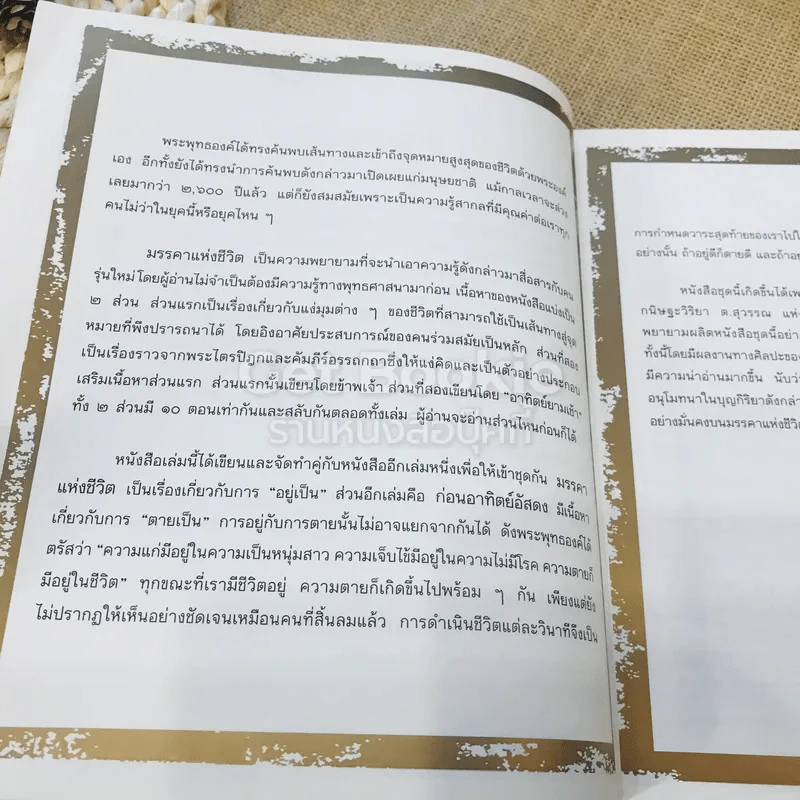 พระพุทธองค์ได้ทรงค้นพบเส้นทางและเข้าถึงจุดหมายสูงสุดของชีวิตด้วยพระองค์
เอง อีกทั้งยังได้ทรงนำการค้นพบดังกล่าวมาเปิดเผยแก่มนุษยชาติ แม้กาลเวลาจะล่วง
เลยมากว่า ๒,๖๐๐ ปีแล้ว แต่ก็ยังสมสมัยเพราะเป็นความรู้สากลที่มีคุณค่าต่อเราทุก
คนไม่ว่าในยุคนี้หรือยุคไหน ๆ
มรรคาแห่งชีวิต เป็นความพยายามที่จะนำเอาความรู้ดังกล่าวมาสื่อสารกับคน
รุ่นใหม่โดยผู้อ่านไม่จำเป็นต้องมีความรู้ทางพุทธศาสนามาก่อน เนื้อหาของหนังสือแบ่งเป็น
๒ ส่วน ส่วนแรกเป็นเรื่องเกี่ยวกับแง่มุมต่าง ๆ ของชีวิตที่สามารถใช้เป็นเส้นทางสู่จุด
หมายที่พึงปรารถนาได้ โดยอิงอาศัยประสบการณ์ของคนร่วมสมัยเป็นหลัก ส่วนที่สอง
เป็นเรื่องราวจากพระไตรปิฎกและคัมภีร์อรรถกถาซึ่งให้แง่คิดและเป็นตัวอย่างประกอบ
เสริมเนื้อหาส่วนแรก ส่วนแรกนั้นเขียนโดยข้าพเจ้า ส่วนที่สองเขียนโดย “อาทิตย์ยามเช้า”
ทั้ง ๒ ส่วนมี ๑๐ ตอนเท่ากันและสลับกันตลอดทั้งเล่ม ผู้อ่านจะอ่านส่วนไหนก่อนก็ได้
หนังสือเล่มนี้ได้เขียนและจัดทำคู่กับหนังสืออีกเล่มหนึ่งเพื่อให้เข้าชุดกัน มรรคา
แห่งชีวิต เป็นเรื่องเกี่ยวกับการ “อยู่เป็น” ส่วนอีกเล่มคือ ก่อนอาทิตย์อัสดง มีเนื้อหา
เกี่ยวกับการ “ตายเป็น” การอยู่กับการตายนั้นไม่อาจแยกจากกันได้ ดังพระพุทธองค์ได้
ตรัสว่า “ความแก่มีอยู่ในความเป็นหนุ่มสาว ความเจ็บไข้มีอยู่ในความไม่มีโรค ความตายก็
มีอยู่ในชีวิต” ทุกขณะที่เรามีชีวิตอยู่ ความตายก็เกิดขึ้นไปพร้อม ๆ กัน เพียงแต่ยัง
ไม่ปรากฏให้เห็นอย่างชัดเจนเหมือนคนที่สิ้นลมแล้ว การดำเนินชีวิตแต่ละวินาทีจึงเป็น
การกำหนดวาระสุดท้ายของเราไปใ
อย่างนั้น ถ้าอยู่ดีก็ตายดี และถ้าอย
หนังสือชุดนี้เกิดขึ้นได้เพ
กนิษฐะวิริยา ต.สุวรรณ แห่ง
พยายามผลิตหนังสือชุดนี้อย่า
ทั้งนี้โดยมีผลงานทางศิลปะของ
มีความน่าอ่านมากขึ้น นับว่
อนุโมทนาในบุญกิริยาดังกล่า
อย่างมั่นคงบนมรรคาแห่งชีวิ
Get Bookie
ร้านหนังสือบุ๊คกี้